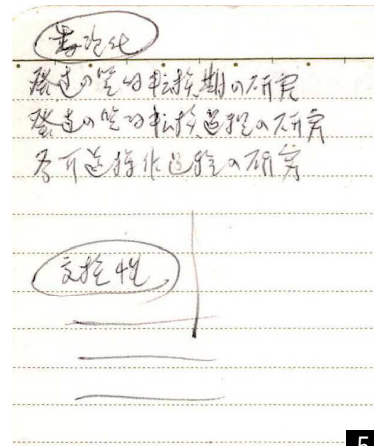 発達の質的転換期の研究
発達の質的転換過程の研究
可逆操作過程の研究
交換性
5